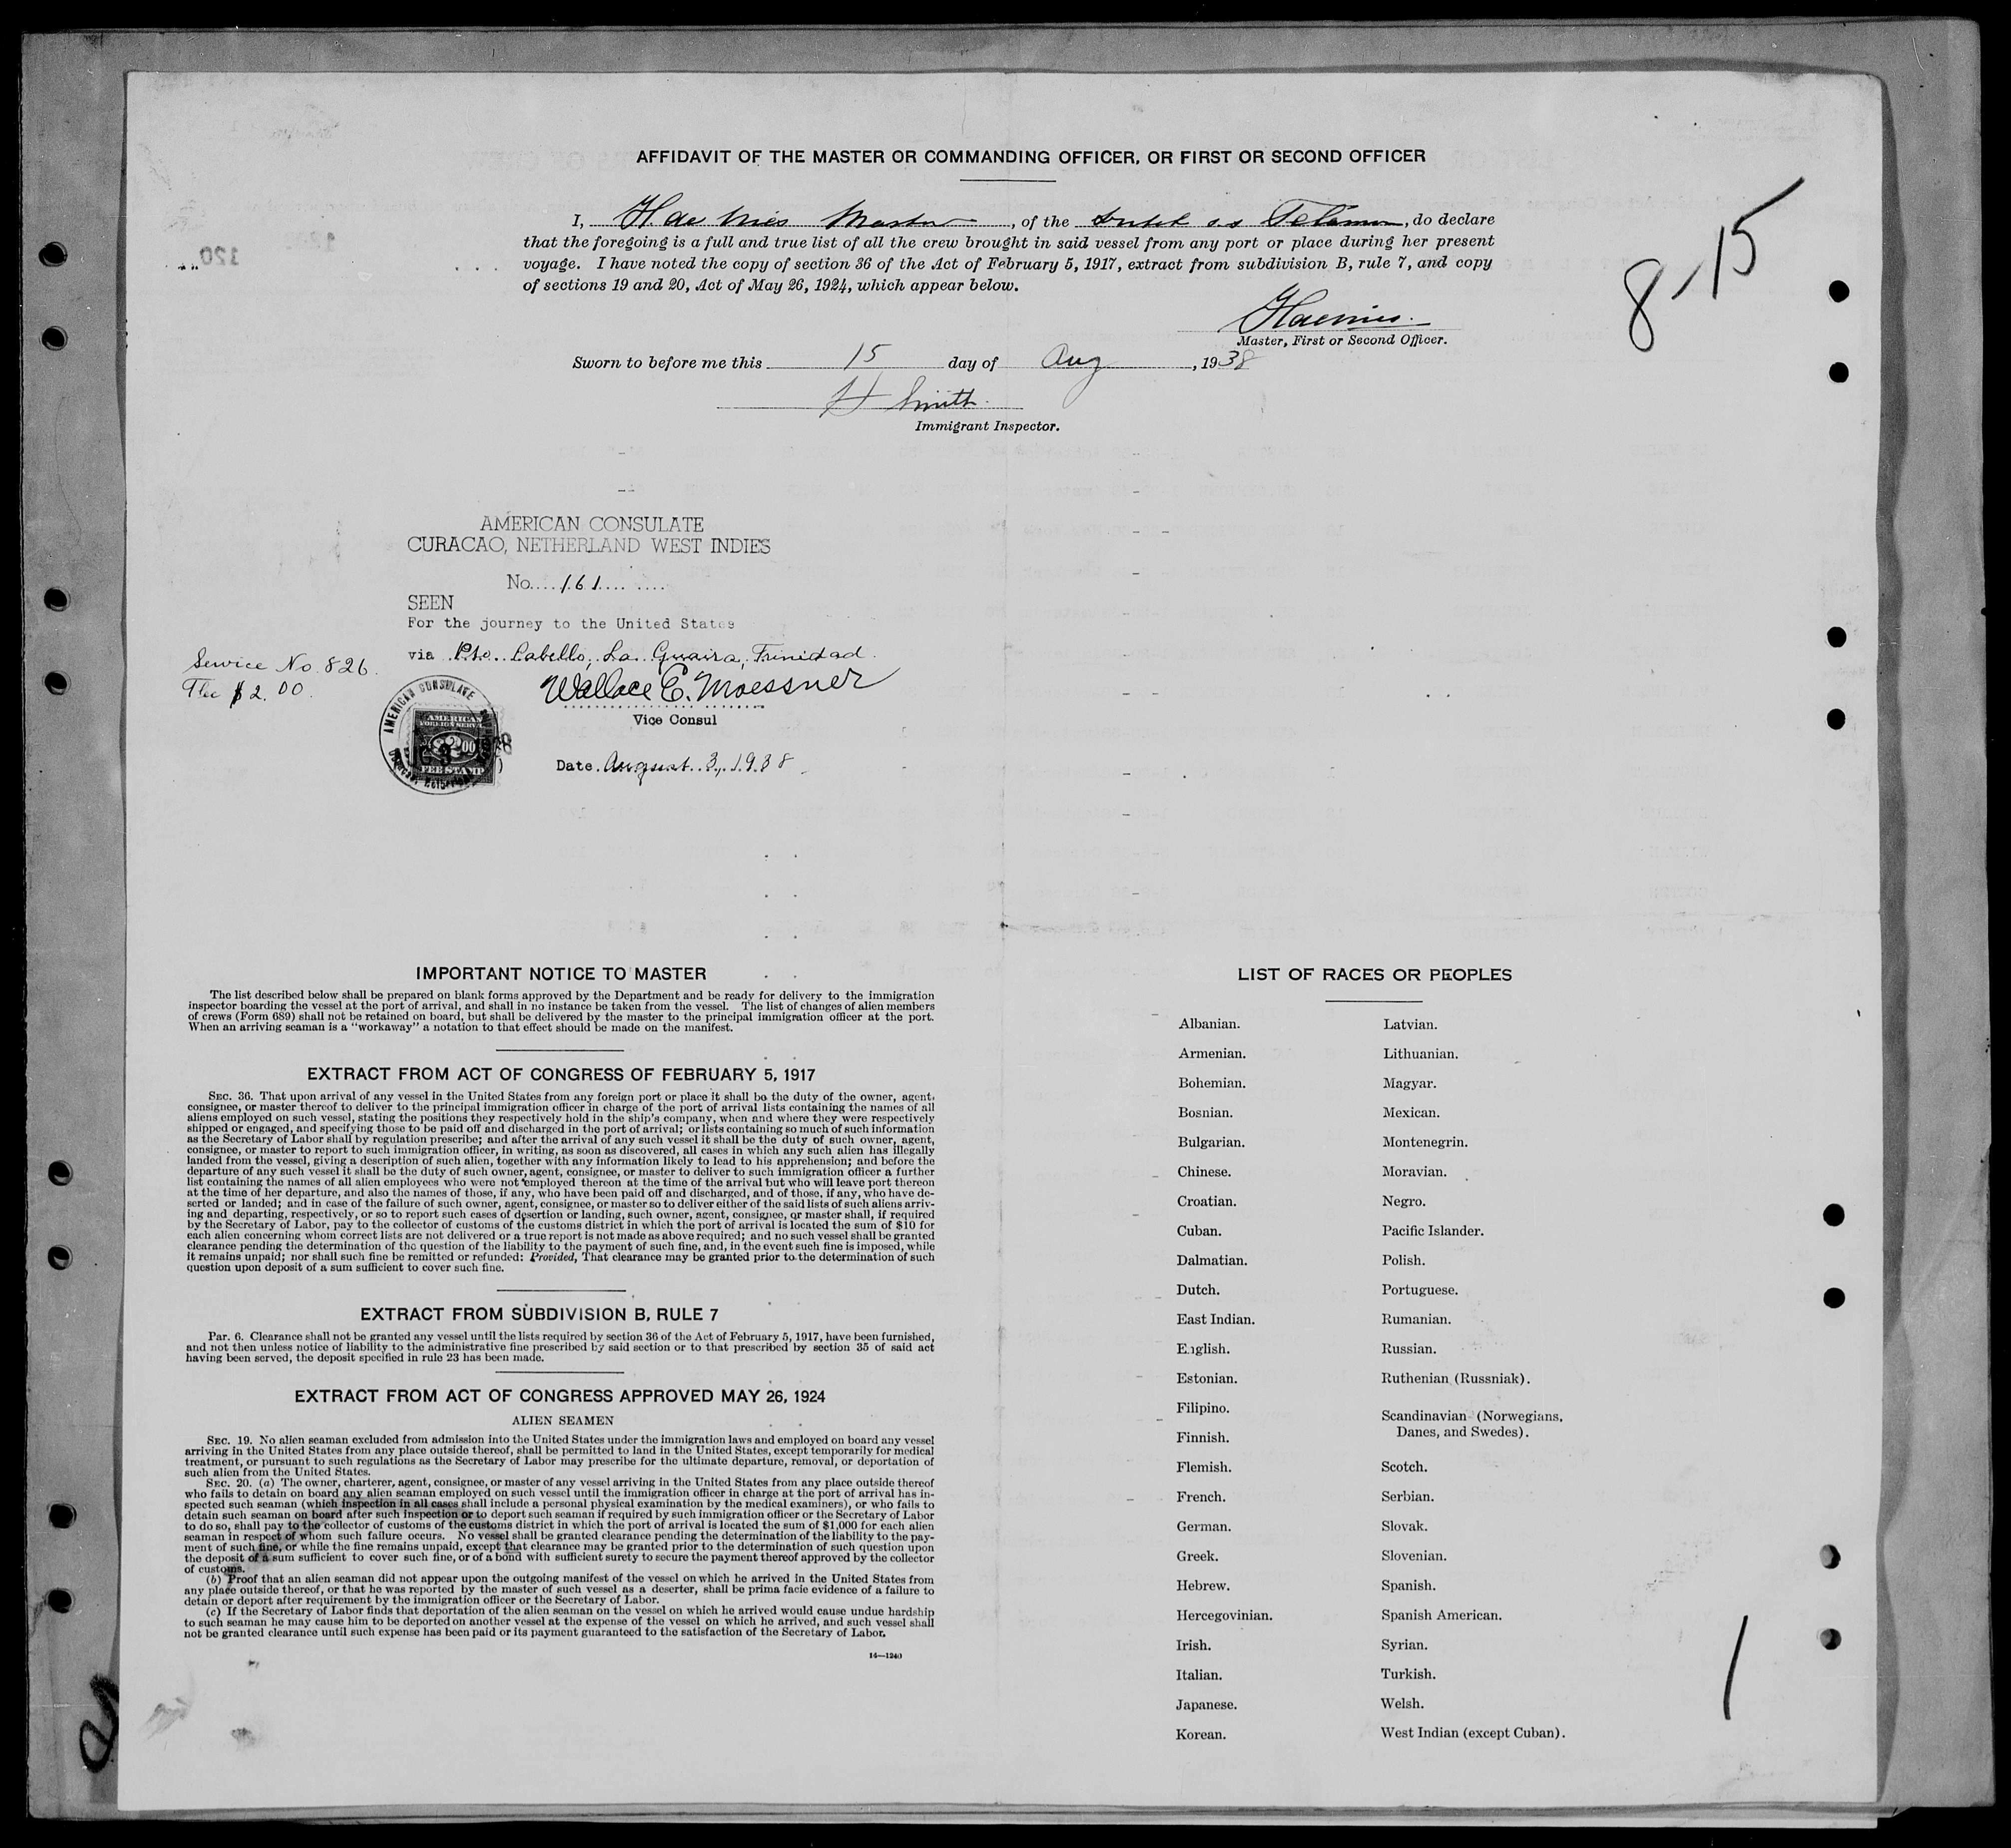 AFFIDAVIT OF THE MASTER OR COMMANDING OFFICER, OR FIRST OR SECOND OFFICER
8-15
I, H. de Vries Master, of the Dutch s.s. Telamon, do declare
that the foregoing is a full and true list of all the crew brought in said vessel from any port or place during her present
voyage. I have noted the copy of section 36 of the Act of February 5, 1917, extract from subdivision B, rule 7, and copy
of sections 19 and 20, Act of May 26, 1924, which appear below.
Master, First or Second Officer.
Sworn to before me this 15 day of Aug, 1938
H Smith
Immigrant Inspector.
AMERICAN CONSULATE
CURACAO, NETHERLAND WEST INDIES
No....161........
SEEN
For the journey to the United States
via Pto. Cabello, La Guaira, Trinidad
Service No. 826.
Fee $2.00.
Wallace E. Moessner
Vice Consul
AMERICAN CONSULATE
AMERICAN
FOREIGN SERV.
$2.00
FEE STAMP
Date August 3, 1938
IMPORTANT NOTICE TO MASTER
The list described below shall be prepared on blank forms approved by the Department and be ready for delivery to the immigration
inspector boarding the vessel at the port of arrival, and shall in no instance be taken from the vessel. The list of changes of alien members
of crews (Form 689) shall not be retained on board, but shall be delivered by the master to the principal immigration officer at the port.
When an arriving seaman is a "workaway" a notation to that effect should be made on the manifest.
EXTRACT FROM ACT OF CONGRESS OF FEBRUARY 5, 1917
SEC. 36. That upon arrival of any vessel in the United States from any foreign port or place it shall be the duty of the owner, agent,
consignee, or master thereof to deliver to the principal immigration officer in charge of the port of arrival lists containing the names of all
aliens employed on such vessel, stating the positions they respectively hold in the ship's company, when and where they were respectively
shipped or engaged, and specifying those to be paid off and discharged in the port of arrival; or lists containing so much of such information
as the Secretary of Labor shall by regulation prescribe; and after the arrival of any such vessel it shall be the duty of such owner, agent,
consignee, or master to report to such immigration officer, in writing, as soon as discovered, all cases in which any such alien has illegally
landed from the vessel, giving a description of such alien, together with any information likely to lead to his apprehension; and before the
departure of any such vessel it shall be the duty of such owner, agent, consignee, or master to deliver to such immigration officer a further
list containing the names of all alien employees who were not employed thereon at the time of the arrival but who will leave port thereon
at the time of her departure, and also the names of those, if any, who have been paid off and discharged, and of those, if any, who have de-
serted or landed; and in case of the failure of such owner, agent, consignee, or master so to deliver either of the said lists of such aliens arriv-
ing and departing, respectively, or so to report such cases of desertion or landing, such owner, agent, consignee, or master shall, if required
by the Secretary of Labor, pay to the collector of customs of the customs district in which the port of arrival is located the sum of $10 for
each alien concerning whom correct lists are not delivered or a true report is not made as above required; and no such vessel shall be granted
clearance pending the determination of the question of the liability to the payment of such fine, and, in the event such fine is imposed, while
it remains unpaid; nor shall such fine be remitted or refunded: Provided, That clearance may be granted prior to the determination of such
question upon deposit of a sum sufficient to cover such fine.
EXTRACT FROM SUBDIVISION B, RULE 7
Par. 6. Clearance shall not be granted any vessel until the lists required by section 36 of the Act of February 5, 1917, have been furnished,
and not then unless notice of liability to the administrative fine prescribed by said section or to that prescribed by section 35 of said act
having been served, the deposit specified in rule 23 has been made.
EXTRACT FROM ACT OF CONGRESS APPROVED MAY 26, 1924
ALIEN SEAMEN
SEC. 19. No alien seaman excluded from admission into the United States under the immigration laws and employed on board any vessel
arriving in the United States from any place outside thereof, shall be permitted to land in the United States, except temporarily for medical
treatment, or pursuant to such regulations as the Secretary of Labor may prescribe for the ultimate departure, removal, or deportation of
such alien from the United States.
SEC. 20. (a) The owner, charterer, agent, consignee, or master of any vessel arriving in the United States from any place outside thereof
who fails to detain on board any alien seaman employed on such vessel until the immigration officer in charge at the port of arrival has in-
spected such seaman (which inspection in all cases shall include a personal physical examination by the medical examiners), or who fails to
detain such seaman on board after such inspection or to deport such seaman if required by such immigration officer or the Secretary of Labor
to do so, shall pay to the collector of customs of the customs district in which the port of arrival is located the sum of $1,000 for each alien
seaman in respect of whom such failure occurs. No vessel shall be granted clearance pending the determination of the liability to the pay-
ment of such fine, or while the fine remains unpaid, except that clearance may be granted prior to the determination of such question upon
the deposit of a sum sufficient to cover such fine, or of a bond with sufficient surety to secure the payment thereof approved by the collector
of customs.
(b) Proof that an alien seaman did not appear upon the outgoing manifest of the vessel on which he arrived in the United States from
any place outside thereof, or that he was reported by the master of such vessel as a deserter, shall be prima facie evidence of a failure to
detain or deport after requirement by the immigration officer or the Secretary of Labor.
(c) If the Secretary of Labor finds that deportation of the alien seaman on the vessel on which he arrived would cause undue hardship
to such seaman he may cause him to be deported on another vessel at the expense of the vessel on which he arrived, and such vessel shall
not be granted clearance until such expense has been paid or its payment guaranteed to the satisfaction of the Secretary of Labor.
14—1240
LIST OF RACES OR PEOPLES
Albanian.
Armenian.
Bohemian.
Bosnian.
Bulgarian.
Chinese.
Croatian.
Cuban.
Dalmatian.
Dutch.
East Indian.
English.
Estonian.
Filipino.
Finnish.
Flemish.
French.
German.
Greek.
Hebrew.
Hercegovinian.
Irish.
Italian.
Japanese.
Korean.
Latvian.
Lithuanian.
Magyar.
Mexican.
Montenegrin.
Moravian.
Negro.
Pacific Islander.
Polish.
Portuguese.
Rumanian.
Russian.
Ruthenian (Russniak).
Scandinavian (Norwegians,
Danes, and Swedes).
Scotch.
Serbian.
Slovak.
Slovenian.
Spanish.
Spanish American.
Syrian.
Turkish.
Welsh.
West Indian (except Cuban).
1